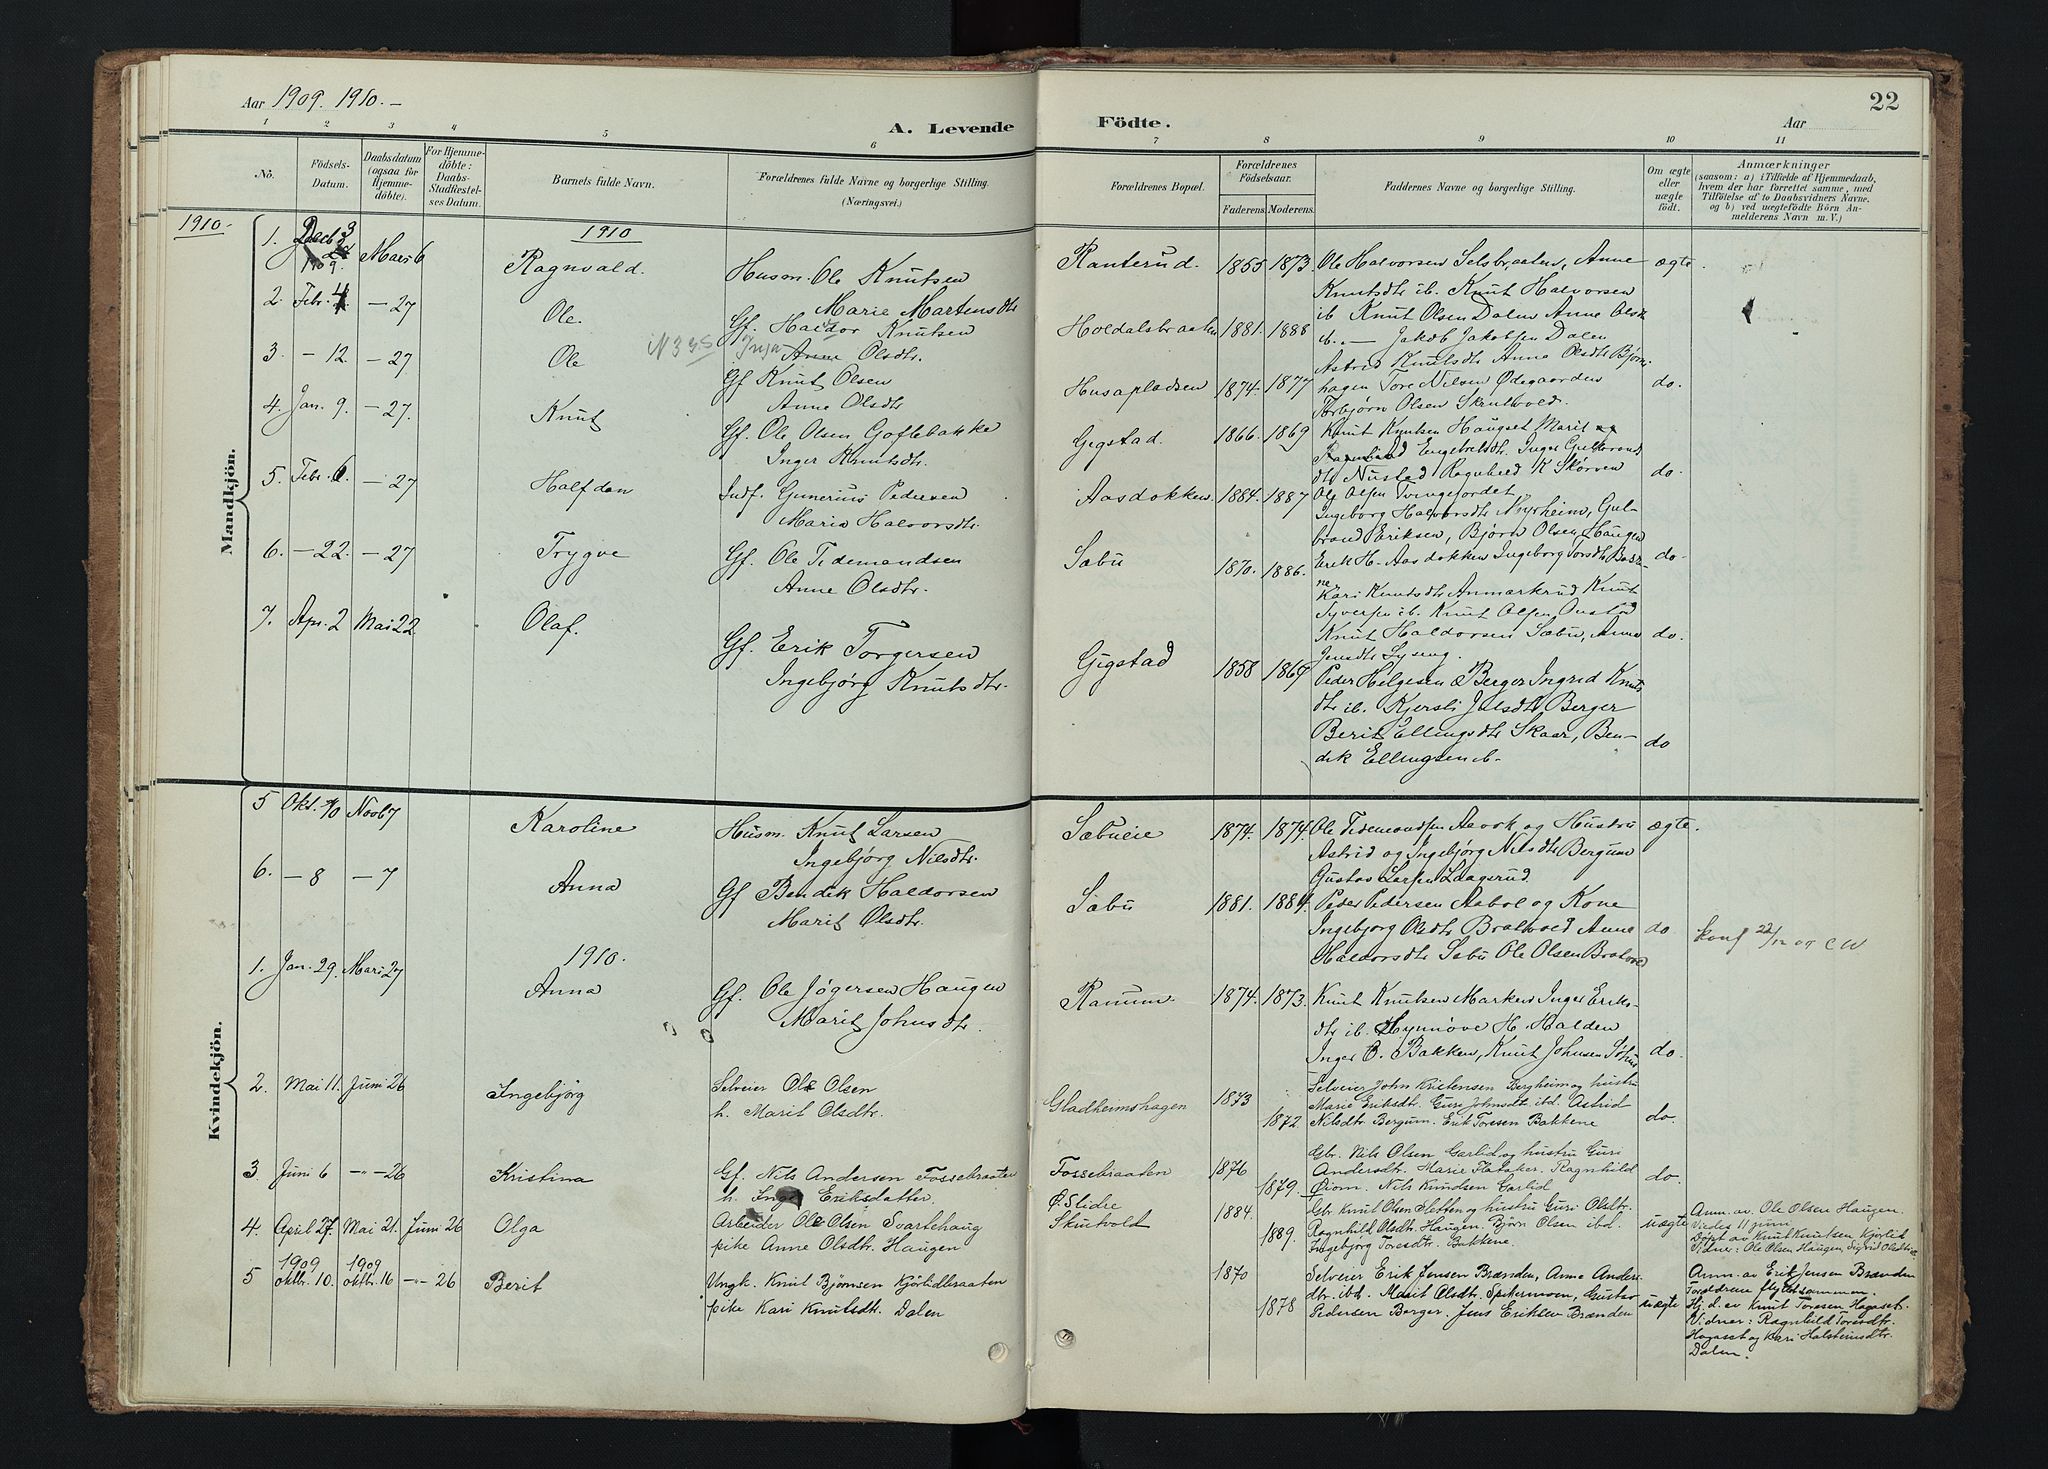 Aar 1909. 1910.-
A. Levende Födte.
Aar
22
1 2 3 4 5 6 7 8 9 10 11
No.
Födsels-Datum.
Daabsdatum (ogsaa for Hjemmedöbte).
For Hjemmedöbte: Daabs-Stadfæstelses Datum.
Barnets fulde Navn.
Forældrenes fulde Navne og borgerlige Stilling.
(Næringsvei.)
Forældrenes Bopæl.
Forældrenes Födselsaar.
Faderens. Moderens.
Faddernes Navne og borgerlige Stilling.
Om ægte eller uægte födt.
Anmærkninger
(saasom: a) i Tilfælde af Hjemmedaab, hvem der har forrettet samme, med Tilföielse af to Daabsvidners Navne, og b) ved uægtefödte Börn Anmelderens Navn m. V.)
Mandkjön.
1910.
1910
1. Decb 3 1909. Mars 6 Ragnvald. Husm. Ole Knutsen
Marie Martensdtr
Ranterud. 1855 1873. Ole Halvorsen Selsbraaten, Anne
Knutsdtr ib. Knut Halvorsen
ægte.
2. Febr. 4. - 27 Ole. Gf. Haldor Knutsen
Inga Olsdtr.
Holdalsbraaten 1881. 1888 ib Knut Olsen Dalen Anne Olsdtr
ib. - Jakob Jakobsen Dalen
3. - 12. - 27 Ole N335 Gf Knut Olsen
Anne Olsdtr
Husapladsen 1874 1877 Astrid Knutsdtr Anne Olsdtr Bjørn-
hagen Tore Nilsen Ødegaarden
Torbjørn Olsen Skrutvold.
do.
4. Jan. 9. - 27. Knut Gf. Ole Olsen Goflebakke
Inger Knutsdtr.
Gigstad. 1866. 1869 Knut Knutsen Haugset Marit
Engebretsdtr. Inger Gulbrands
dtr Nusted Ragnhild K Skørven
do.
5. Febr. 6. - 27 Halfdan Indf. Gunerius Pedersen
Maria Halvorsdtr.
Aasdokken 1884. 1887 Ole Olsen Tvingefordet
Ingeborg Halvorsdtr Myrheim, Gul-
brand Eriksen, Bjørn Olsen Haugen
6. - 22. - 27 Trygve Gf. Ole Tidemandsen
Anne Olsdtr.
Sæbu 1870. 1886. Erik H. Aasdokken Ingeborg Torsdtr
do.
Kari Knutsdtr Anmarkrud Knut
Syversen ib. Knut Olsen
Knut Haldorsen Sæbu, Anne
Jensdtr Lyseng.
do.
7. Apr. 2 Mai 22 Olaf. Gf. Erik Torgersen
Ingebjørg Knutsdtr.
Gigstad 1858 1869 Peder Helgesen Berger Ingrid Knuts
dtr ib. Kjersti Julsdtr Berger
Berit Ellingsdtr Skaar, Ben-
dik Ellingsen ib.
do
Kvindekjön.
5 Okt. Novb 7 Karoline Husm. Knut Larsen
Ingebjørg Nilsdtr.
Sæbueie 1874. 1874 Ole Tidemandsen Aevok og Hustru
Astrid og Ingebjørg Nilsdtr Bergum
Gustav Larsen Laagsrud
ægte.
6. - 8 - 7 Anna Gf Bendik Haldorsen
Marit Olsdtr.
Sæbu 1881. 1884. Peder Pedersen Aabol og Kone
Ingebjorg Olsdtr Bratvold Anne
Haldorsdtr Sæbu Ole Olsen Bratvold
do konf 22/12 07 C W
1910.
1. Jan. 29. Mars 27 Anna Gf. Ole Jögersen Haugen
Marit Johnsdtr.
Ranum 1874. 1873. Knut Knutsen Marken Inger Eriks-
dtr ib. Synnöve H. Halden
Inger O. Bakken, Knut Johnsen
do.
2. Mai 11. Juni 26 Ingebjörg Selveier Ole Olsen
h. Marit Olsdtr.
Gladheimshagen 1873 1872. Selveier John Kristensen Bergheim og hustru
Marie Eriksdtr. Guri Johnsdtr ibd. Astrid
Nilsdtr Bergum. Erik Toresen Bakkene
do.
3. Juni 6 -"- 26 Kristina Gf. Nils Andersen Fossebraaten
h. Inga Eriksdatter.
Fossebraaten 1876 1879. Gbr. Nils Olsen Garlid og hustru Guri
Andersdtr. Marie Flataker. Ragnhild
Øiom. Nils Knudsen Garlid
do.
4. April 27. Mai 21. Juni 26 Olga Arbeider Ole Olsen Svartehaug
pike Anne Olsdtr. Haugen
Ø. Slidre
Skrutvold 1884. 1889. Gbr Knut Olsen Sletten og hustru Guri Olsdtr.
Ragnhild Olsdtr. Haugen. Bjørn Olsen ibd.
Ingebjørg Toresdtr. Bakkene.
uægte
Anm. av Ole Olsen Haugen.
Viedes 11 juni
Døpt av Knut Knutsen Kjørlit
Vidner: Ole Olsen Haugen, Sigrid Olsdtr
5 1909 oktbr. 10. 1909 oktbr. 16 -"- 26 Berit Ungk. Knut Bjørnsen Kjörlidbraaten
pike Kari Knutsdtr. Dalen
1870 1878 Selveier Erik Jensen Brænden, Anne Anders
dtr. ibd. Marit Olsdtr. Spikermoen, Gustav
Pedersen Berger. Jens Eriksen Brænden
uægte
Anm. av Erik Jensen Brænden
Forældrene flyttet sammen.
Hj. d. av Knut Toresen Hogaset.
Vidner: Ragnhild Toresdtr.
Hogaset og Kari Halsteinsdtr.
Dalen.